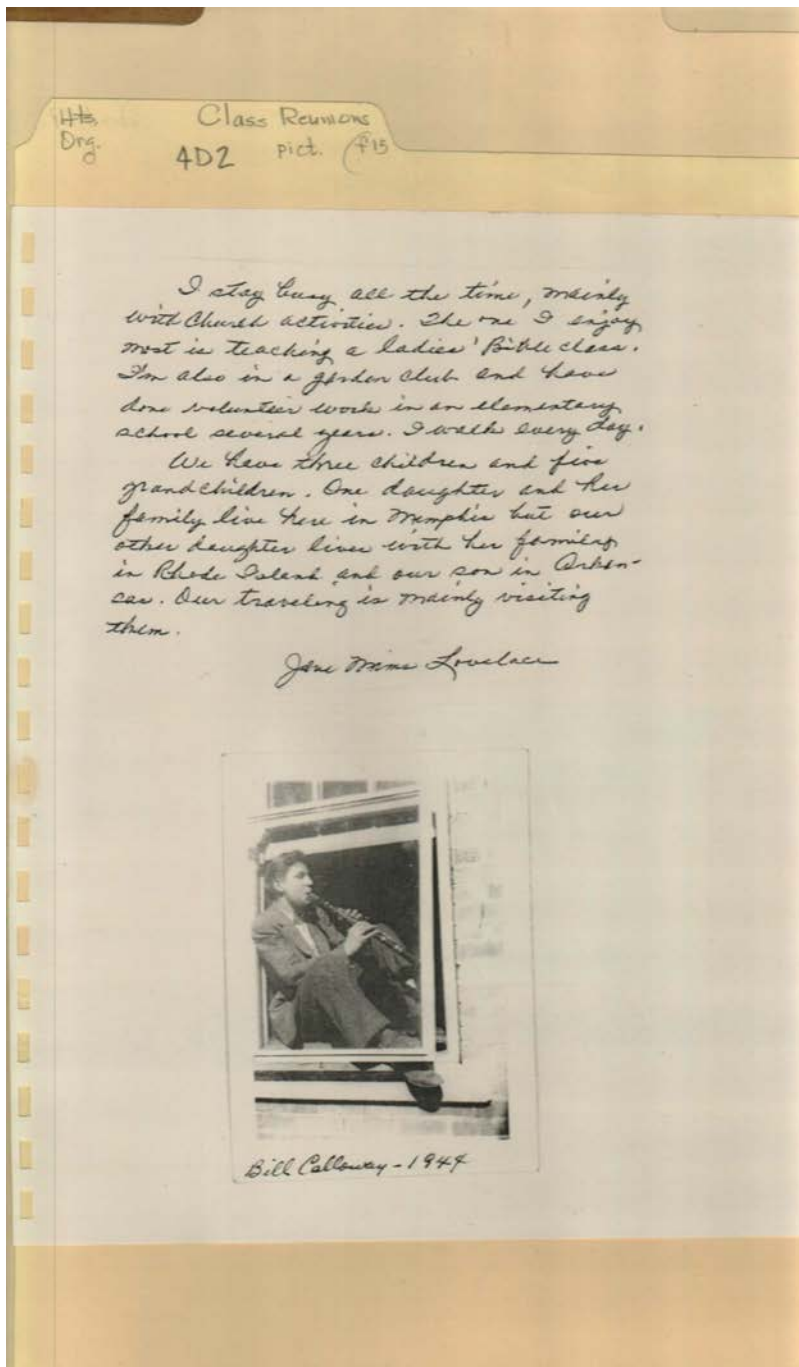 Hts.
Org.
Class Reunions
4D2 pict.
I stay busy all the time, mainly
with Church activities. The one I enjoy
most is teaching a ladies' Bible class.
I'm also in a garden club and have
done volunteer work in an elementary
school several years. I walk every day.
We have three children and five
grandchildren. One daughter and her
family live here in Memphis but our
other daughter lives with her family
in Rhode Island and our son in Arkan-
sas. Our traveling is mainly visiting
them.
Jane Mims Lovelace
Bill Calloway - 1944